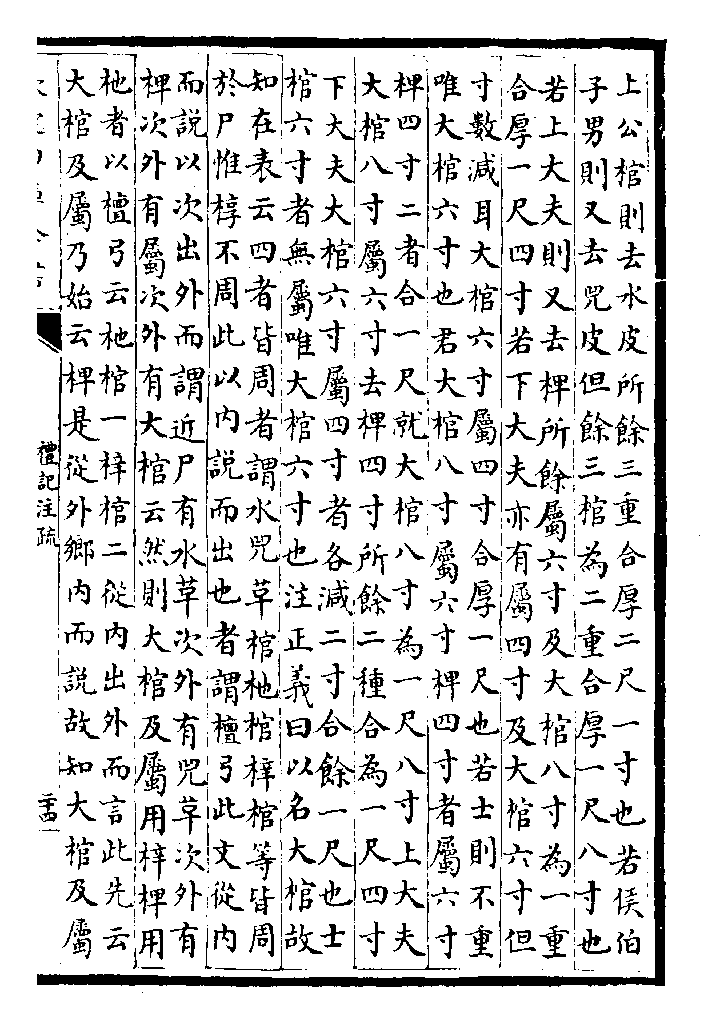 上公棺則去水皮所餘三重合厚二尺一寸也若侯伯
子男則又去兕皮但餘三棺為二重合厚一尺八寸也
若上大夫則又去椑所餘屬六寸及大棺八寸為一重
合厚一尺四寸若下大夫亦有屬四寸及大棺六寸但
寸數減耳大棺六寸屬四寸合厚一尺也若士則不重
唯大棺六寸也君大棺八寸屬六寸椑四寸者屬六寸
椑四寸二者合一尺就大棺八寸為一尺八寸上大夫
大棺八寸屬六寸去椑四寸所餘二種合為一尺四寸
下大夫大棺六寸屬四寸者各減二寸合餘一尺也士
棺六寸者無屬唯大棺六寸也注正義曰以名大棺故
知在表云四者皆周者謂水兕草棺杝棺梓棺等皆周
於尸惟椁不周此以内說而出也者謂檀弓此文從内
而說以次出外而謂近尸有水草次外有兕草次外有
椑次外有屬次外有大棺云然則大棺及屬用梓椑用
杝者以檀弓云杝棺一梓棺二從内出外而言此先云
大棺及屬乃始云椑是從外鄉内而說故知大棺及屬
禮記注疏